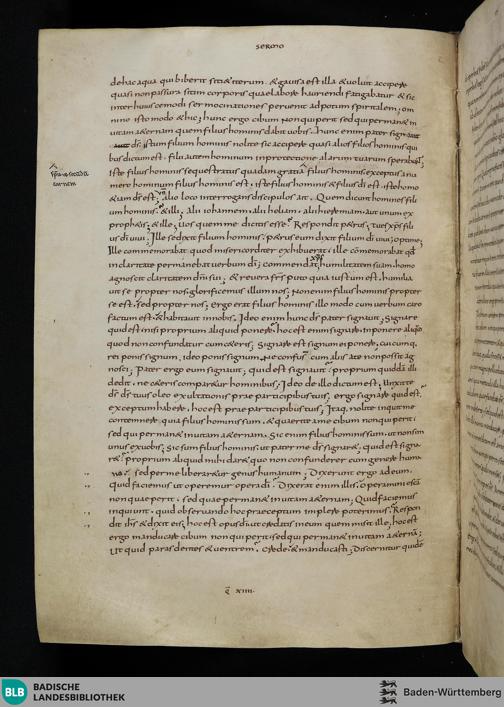 SERMO
de hac aqua qui biberit sitiet iterum. & gavisa est illa & voluit accipere
quasi non passura sitim corporis quae labore hauriendi fatigabatur & sic
inter huiuscemodi sermocinationes pervenit ad potum spiritalem; om
nino isto modo & hic; hunc ergo cibum non qui perit sed qui permanet in
vitam aeternam quem filius hominis dabit vobis. hunc enim pater signavit
ds; istum filium hominis nolite sic accipere quasi alios filios hominis qui
bus dictum est. filii autem hominum in protectione alarum tuarum sperabunt;
Iste filius hominis sequestratus quadam gratia filius hominis. exceptus a nu
mero hominum filius hominis est. iste filius hominis & filius di est. iste homo
& iam ds est; alio loco interrogans discipulos ait. Quem dicunt homines fili
um hominis. & illi; alii iohannem. alii heliam. alii hieremiam. aut unum ex
prophetis; & ille; vos quem me dicitis esse. Respondit petrus; tu es xps fili
us di vivi; Ille se dixit filium hominis. petrus eum dixit filium di vivi; optime;
Ille commemorabat quod misericorditer exhibuerat; ille commemorabat qd
in claritate permanebat; verbum di commendat; humilitatem suam homo
agnoscit claritatem dni sui; & revera frs puto quia iustum est. humilia
vit se propter nos; glorificemus illum nos; Non enim filius hominis propter
se est. sed propter nos; ergo erat filius hominis illo modo cum verbum caro
factum est. & habitavit in nobis. Ideo enim hunc ds pater signavit; Signare
quid est nisi proprium aliquid ponere; hoc est enim signare. inponere aliquid
quod non confundatur cum ceteris; Signare est signum ei ponere; cuicumq.
rei ponis signum. ideo ponis signum. Ne confusum cum aliis a te non possit ag
nosci; Pater ergo eum signavit; quid est signavit; proprium quiddam illi
dedit. ne ceteris compararetur hominibus; Ideo de illo dictum est; Unxit te
ds ds tuus oleo exultationis prae participibus tuis; ergo signare quid est;
exceptum habere. hoc est prae participibus tuis; Itaq. nolite inquit me
contemnere. quia filius hominis sum. & quaerite a me cibum non qui perit.
sed qui permanet in vitam aeternam. Sic enim filius hominis sum. ut non sim
unus ex vobis; sic sum filius hominis. ut pater me ds signaret; quid est signa
ret. proprium aliquid mihi daret. quo non confunderer cum genere huma
no. sed per me liberaretur genus humanum; Dixerunt ergo ad eum.
quid faciemus ut operemur opera di; Dixerat enim illis; operamini escam
non quae perit. sed quae permanet in vitam aeternam; Quid faciemus
inquiunt. quid observando hoc praeceptum implere poterimus. Respon
dit ihs & dixit eis; hoc est opus di ut credatis in eum quem misit ille; hoc est
ergo manducare cibum non qui perit sed qui permanet in vitam aeternam;
Ut quid paras dentes & ventrem. Crede. & manducasti; Discernitur quidem
Q XIIII.
BLB BADISCHE
LANDESBIBLIOTHEK
Baden-Württemberg